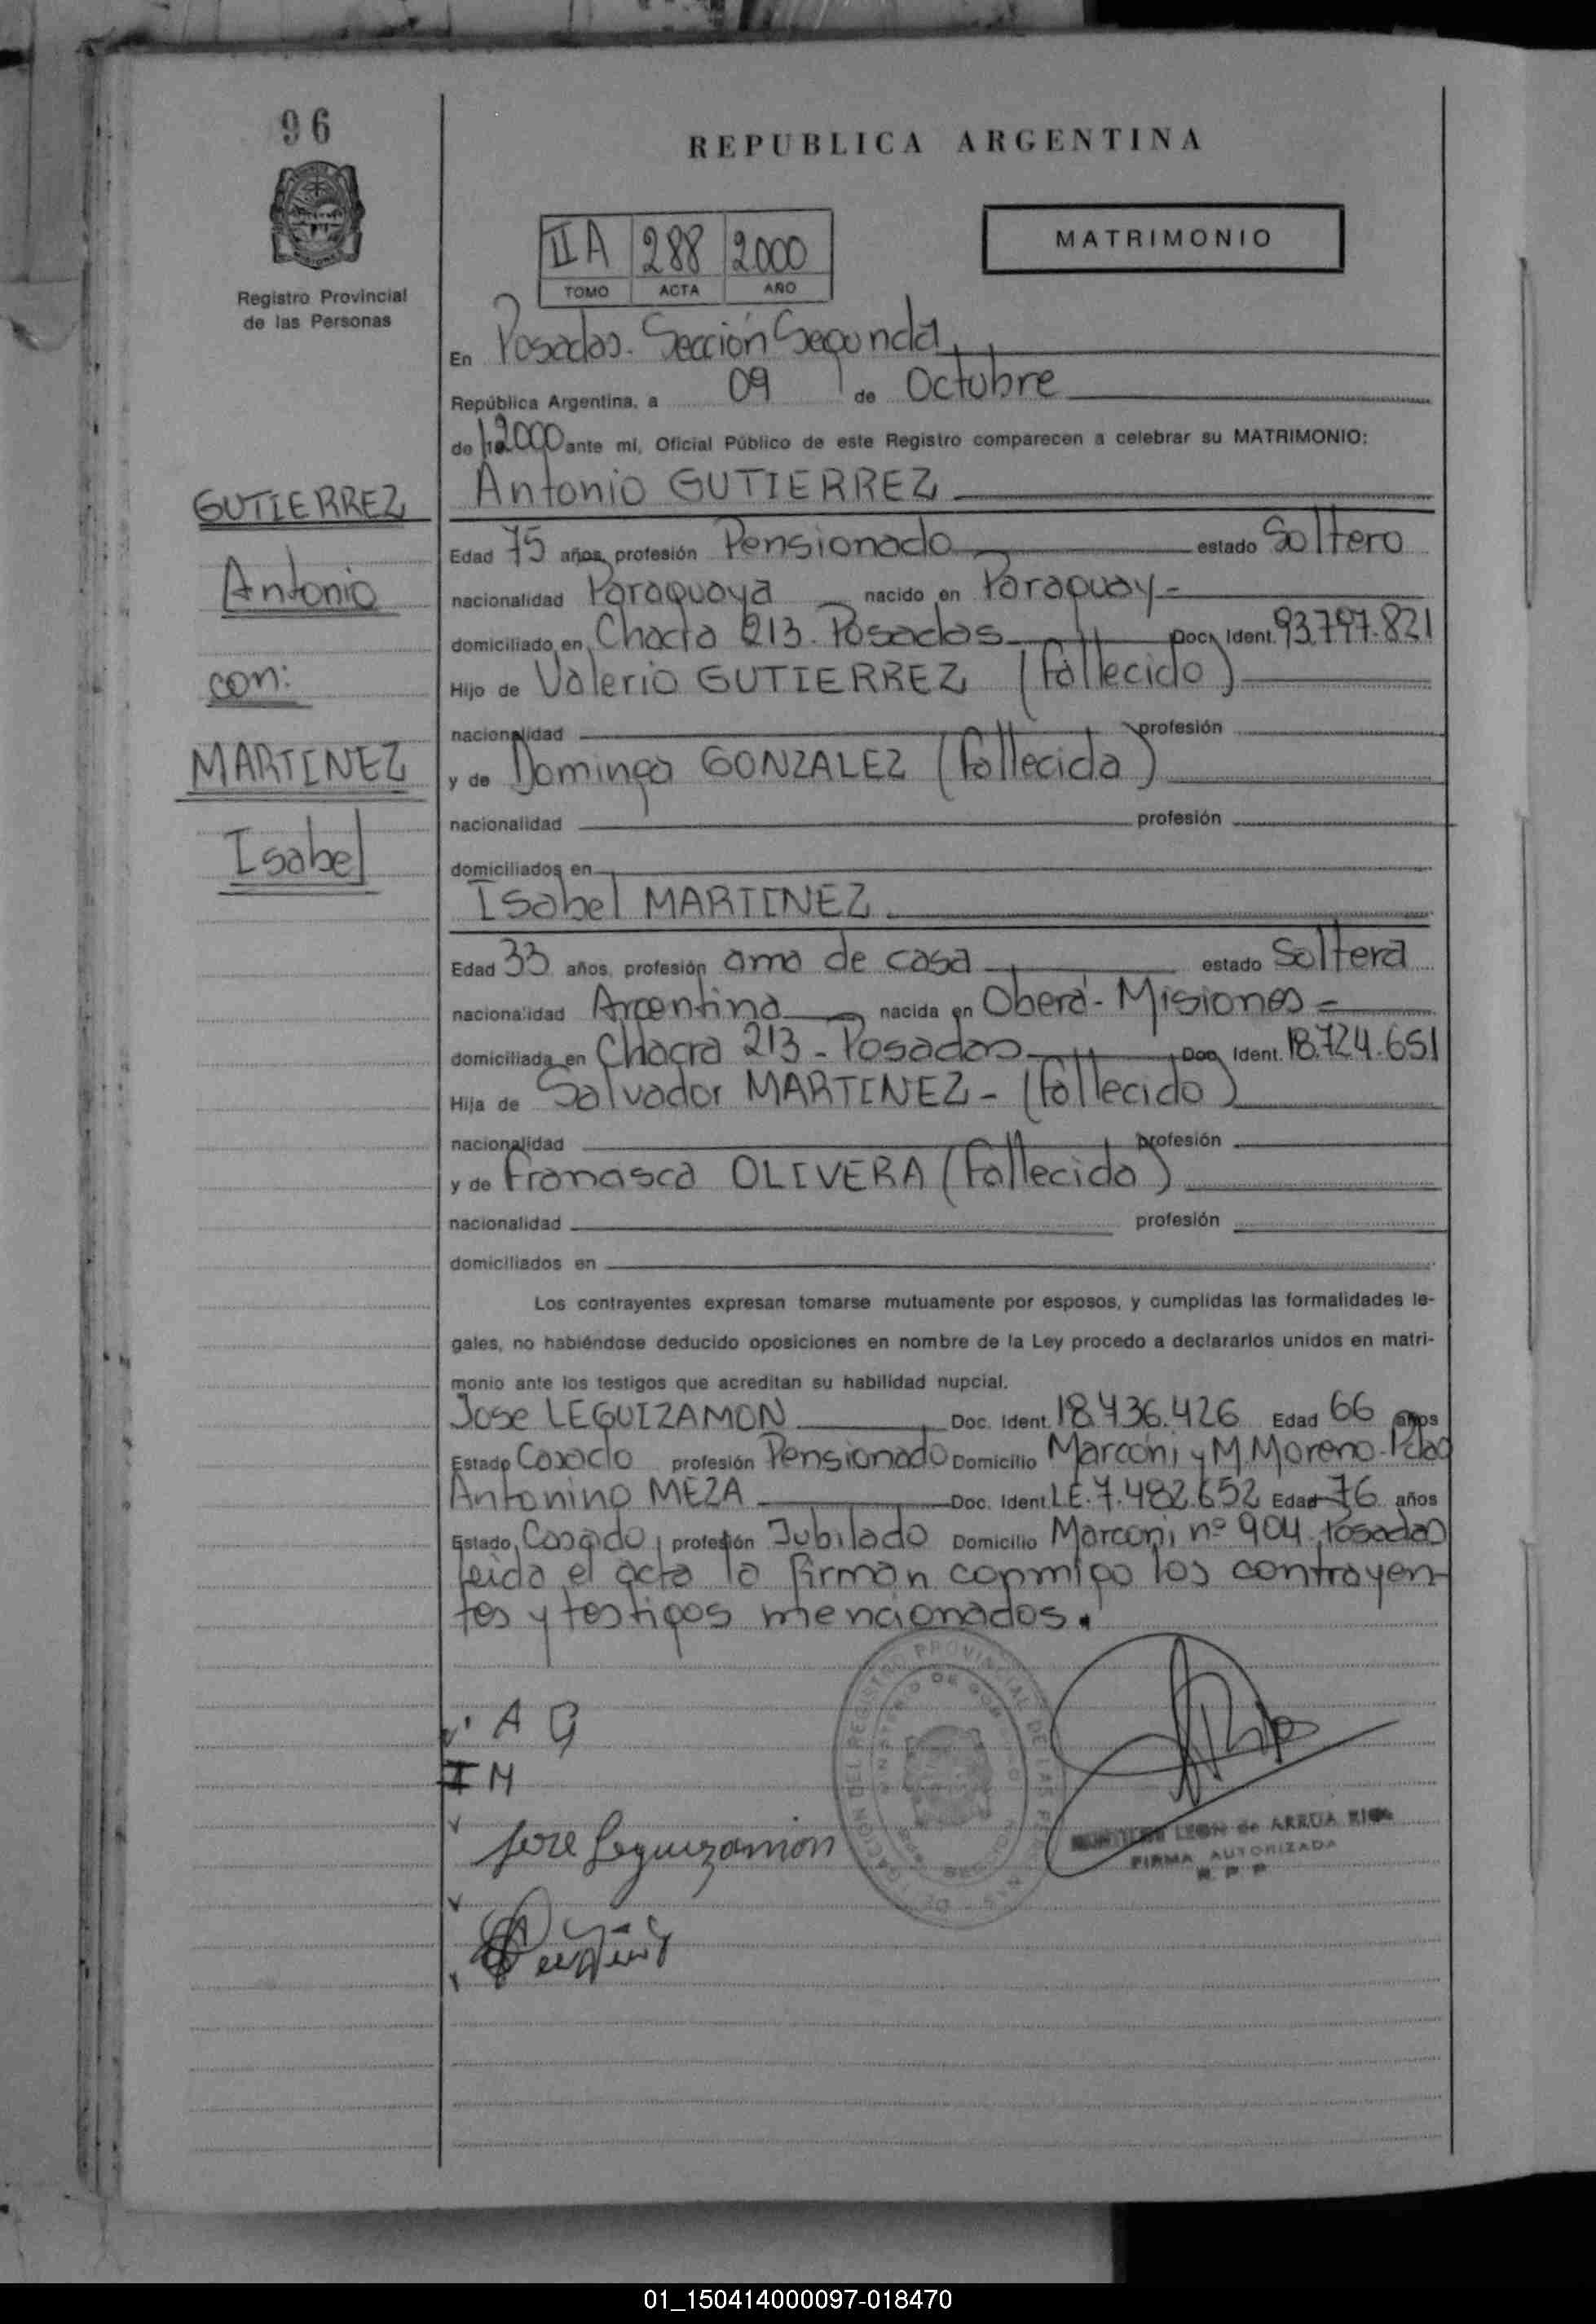 96
REPUBLICA ARGENTINA
MATRIMONIO
IIA 288 2000
TOMO ACTA AÑO
Registro Provincial
de las Personas
En Posadas. Sección Segunda
República Argentina, a 09 de Octubre
de 2000 ante mí, Oficial Público de este Registro comparecen a celebrar su MATRIMONIO:
GUTIERREZ
Antonio
con:
MARTINEZ
Isabel
Antonio GUTIERREZ
Edad 75 años, profesión Pensionado estado Soltero
nacionalidad Paraguaya nacido en Paraguay-
domiciliado en Chacra 213. Posadas Doc. Ident. 93.797.821
Hijo de Valerio GUTIERREZ (fallecido)
nacionalidad profesión
y de Dominga GONZALEZ (fallecida)
nacionalidad profesión
domiciliados en
Isabel MARTINEZ
Edad 33 años, profesión ama de casa estado Soltera
nacionalidad Argentina nacida en Oberá- Misiones
domiciliada en Chacra 213 - Posadas Doc. Ident. 18.724.651
Hija de Salvador MARTINEZ - (fallecido)
nacionalidad profesión
y de Francisca OLIVERA (fallecida)
nacionalidad profesión
domiciliados en
Los contrayentes expresan tomarse mutuamente por esposos, y cumplidas las formalidades le-
gales, no habiéndose deducido oposiciones en nombre de la Ley procedo a declararlos unidos en matri-
monio ante los testigos que acreditan su habilidad nupcial.
Jose LEGUIZAMON Doc. Ident. 18.736.426 Edad 66 años
Estado Casado profesión Pensionado Domicilio Marconi y M. Moreno - Pdas
Antonino MEZA Doc. Ident. LE. 7.482.652 Edad 76 años
Estado Casado profesión Jubilado Domicilio Marconi nº 904 Posadas
leida el acta la firman conmigo los contrayen-
tes y testigos mencionados.
A G
I M
Jose Leguizamon
LEON de ARRUA
FIRMA AUTORIZADA
R. P. P.
01_150414000097-018470